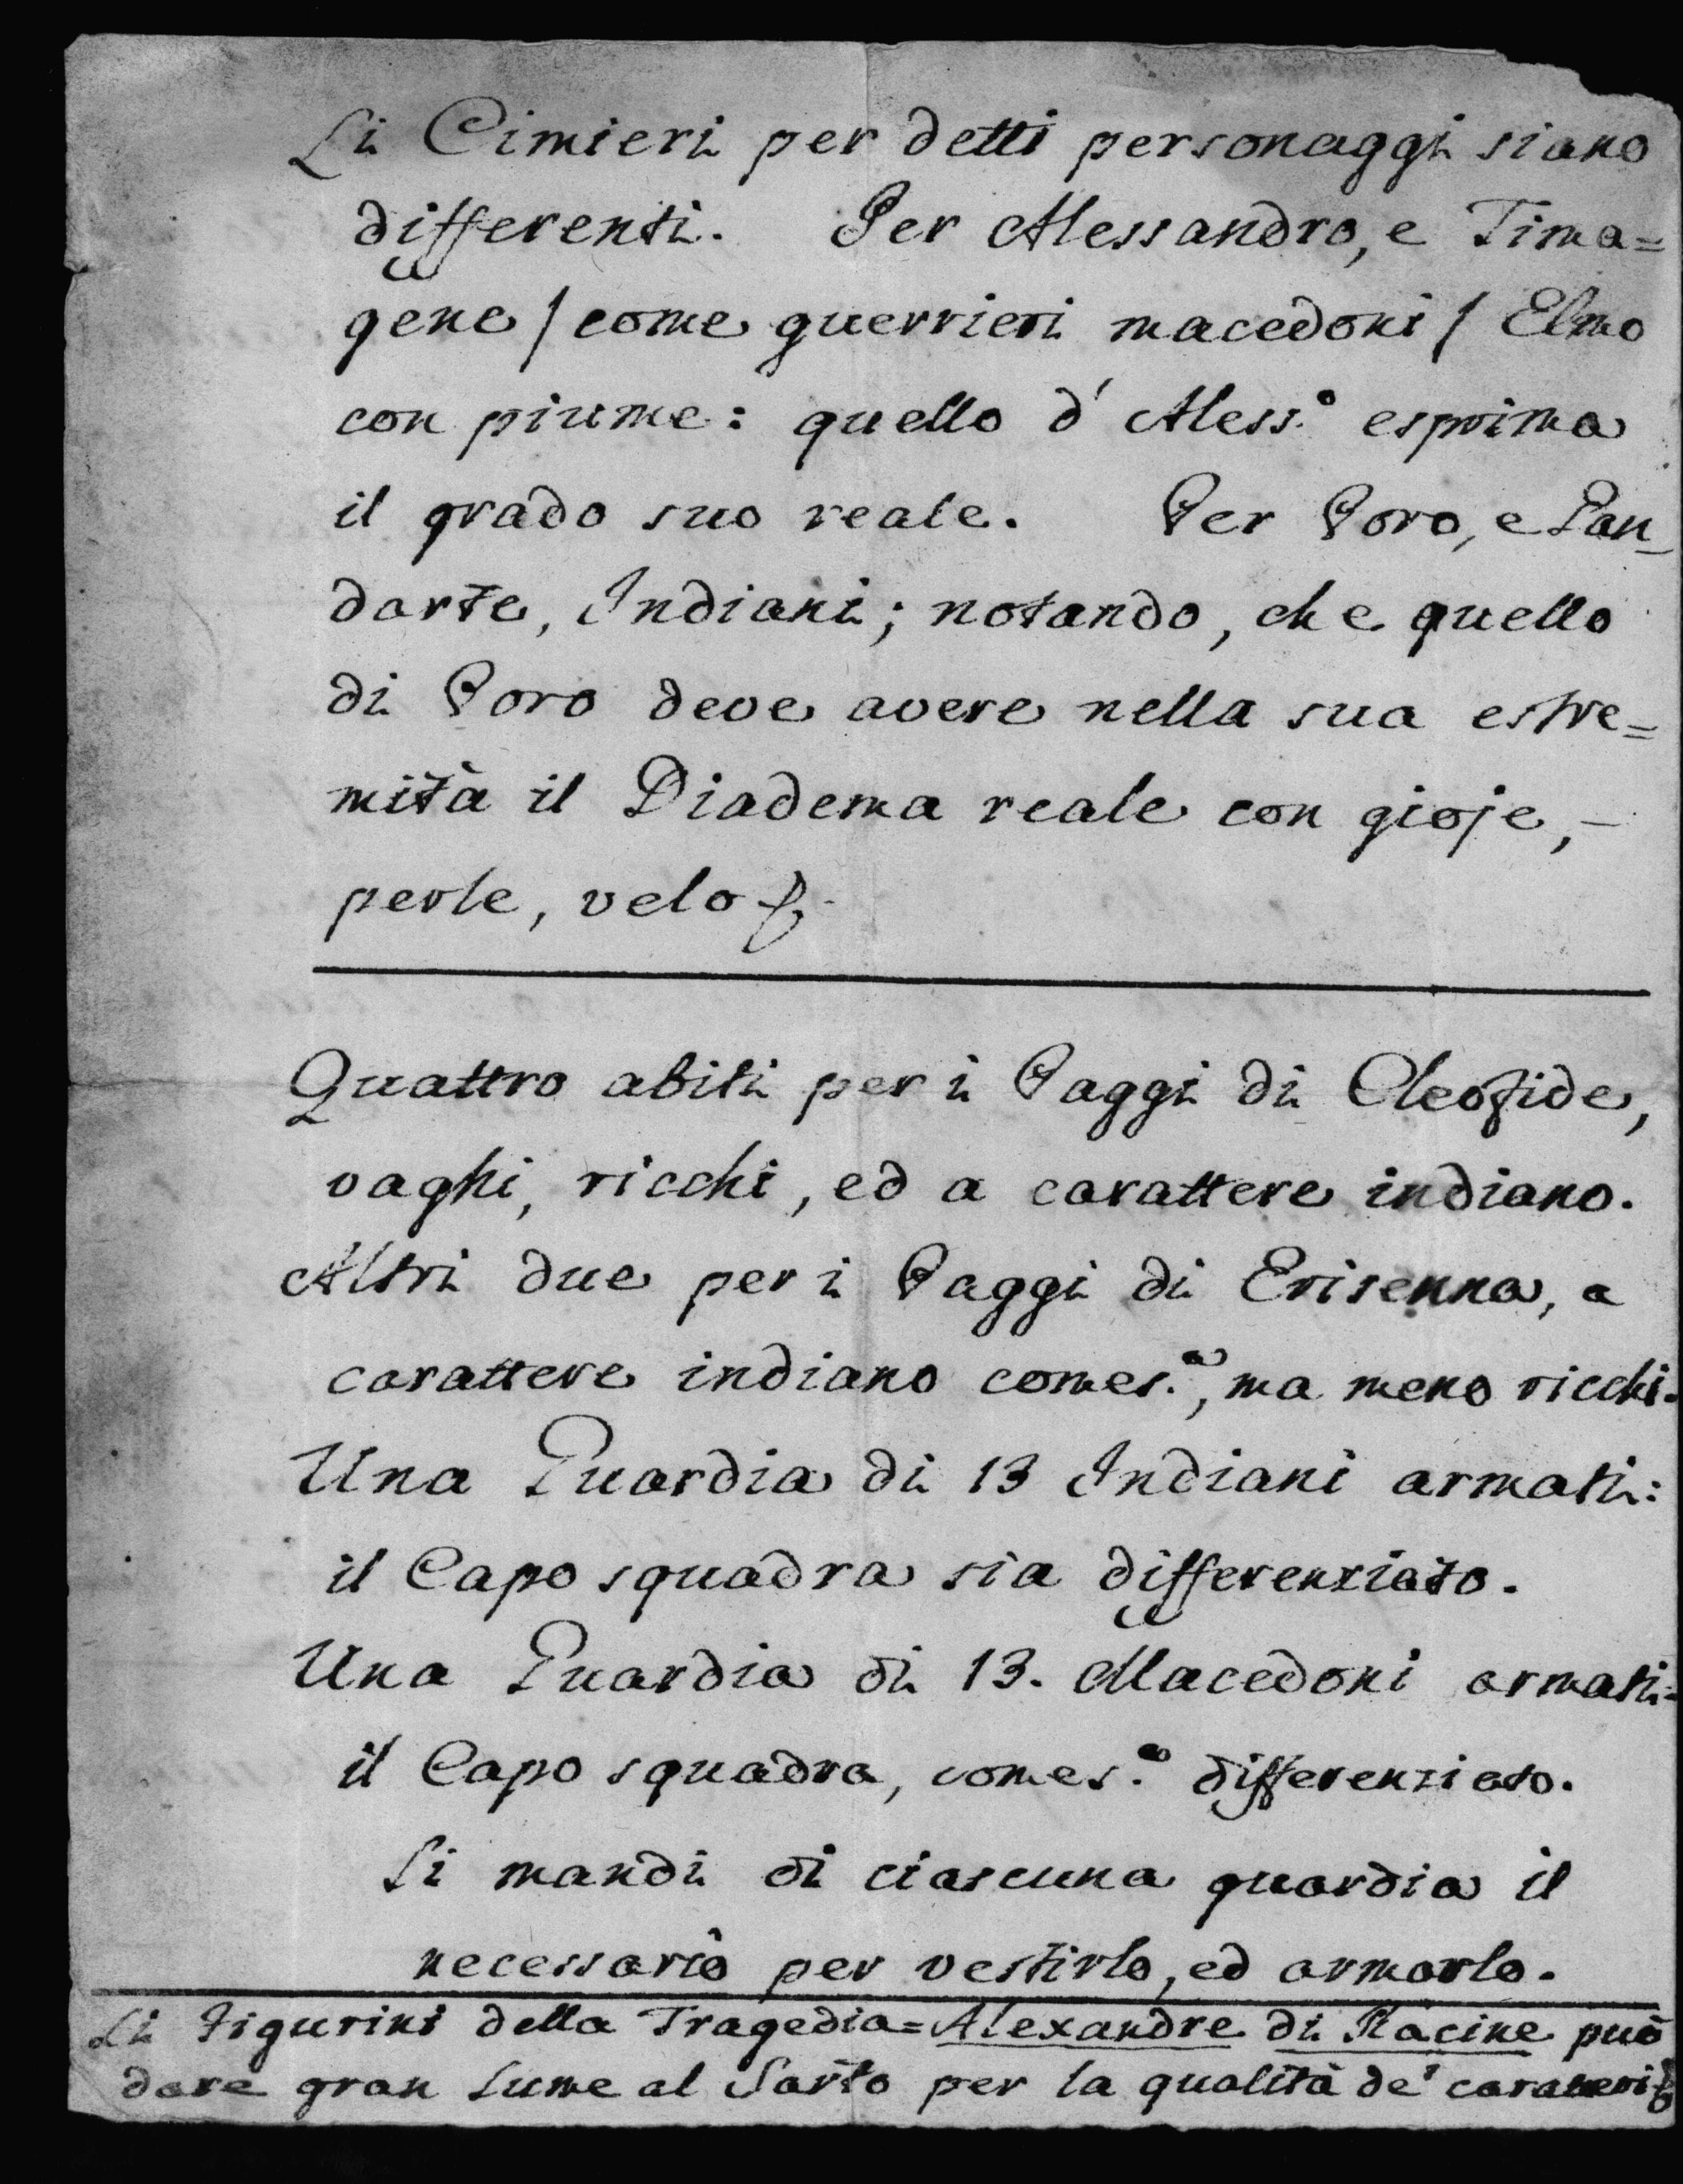 Li Cimieri per detti personaggi siano
differenti. Per Alessandro, e Tima=
gene / come guerrieri macedoni / Elmo
con piume: quello d' Aless.o esprima
il grado suo reale. Per Poro, e Pan_
darte, Indiani; notando, che quello
di Poro deve avere nella sua estre=
mità il Diadema reale con gioje, –
perle, velo
Quattro abiti per i Paggi di Cleofide,
vaghi, ricchi, ed a carattere indiano.
Altri due per i Paggi di Erisenna, a
carattere indiano comes.a, ma meno ricchi.
Una Guardia di 13 Indiani armati:
il Capo squadra sia differenziato.
Una Guardia di 13. Macedoni armati:
il Capo squadra, comes.a differenziato.
Si mandi di ciascuna guardia il
necessario per vestirlo, ed armarlo.
Li Figurini della Tragedia=Alexandre di Racine può
dare gran lume al Sarto per la qualità de' caratteri